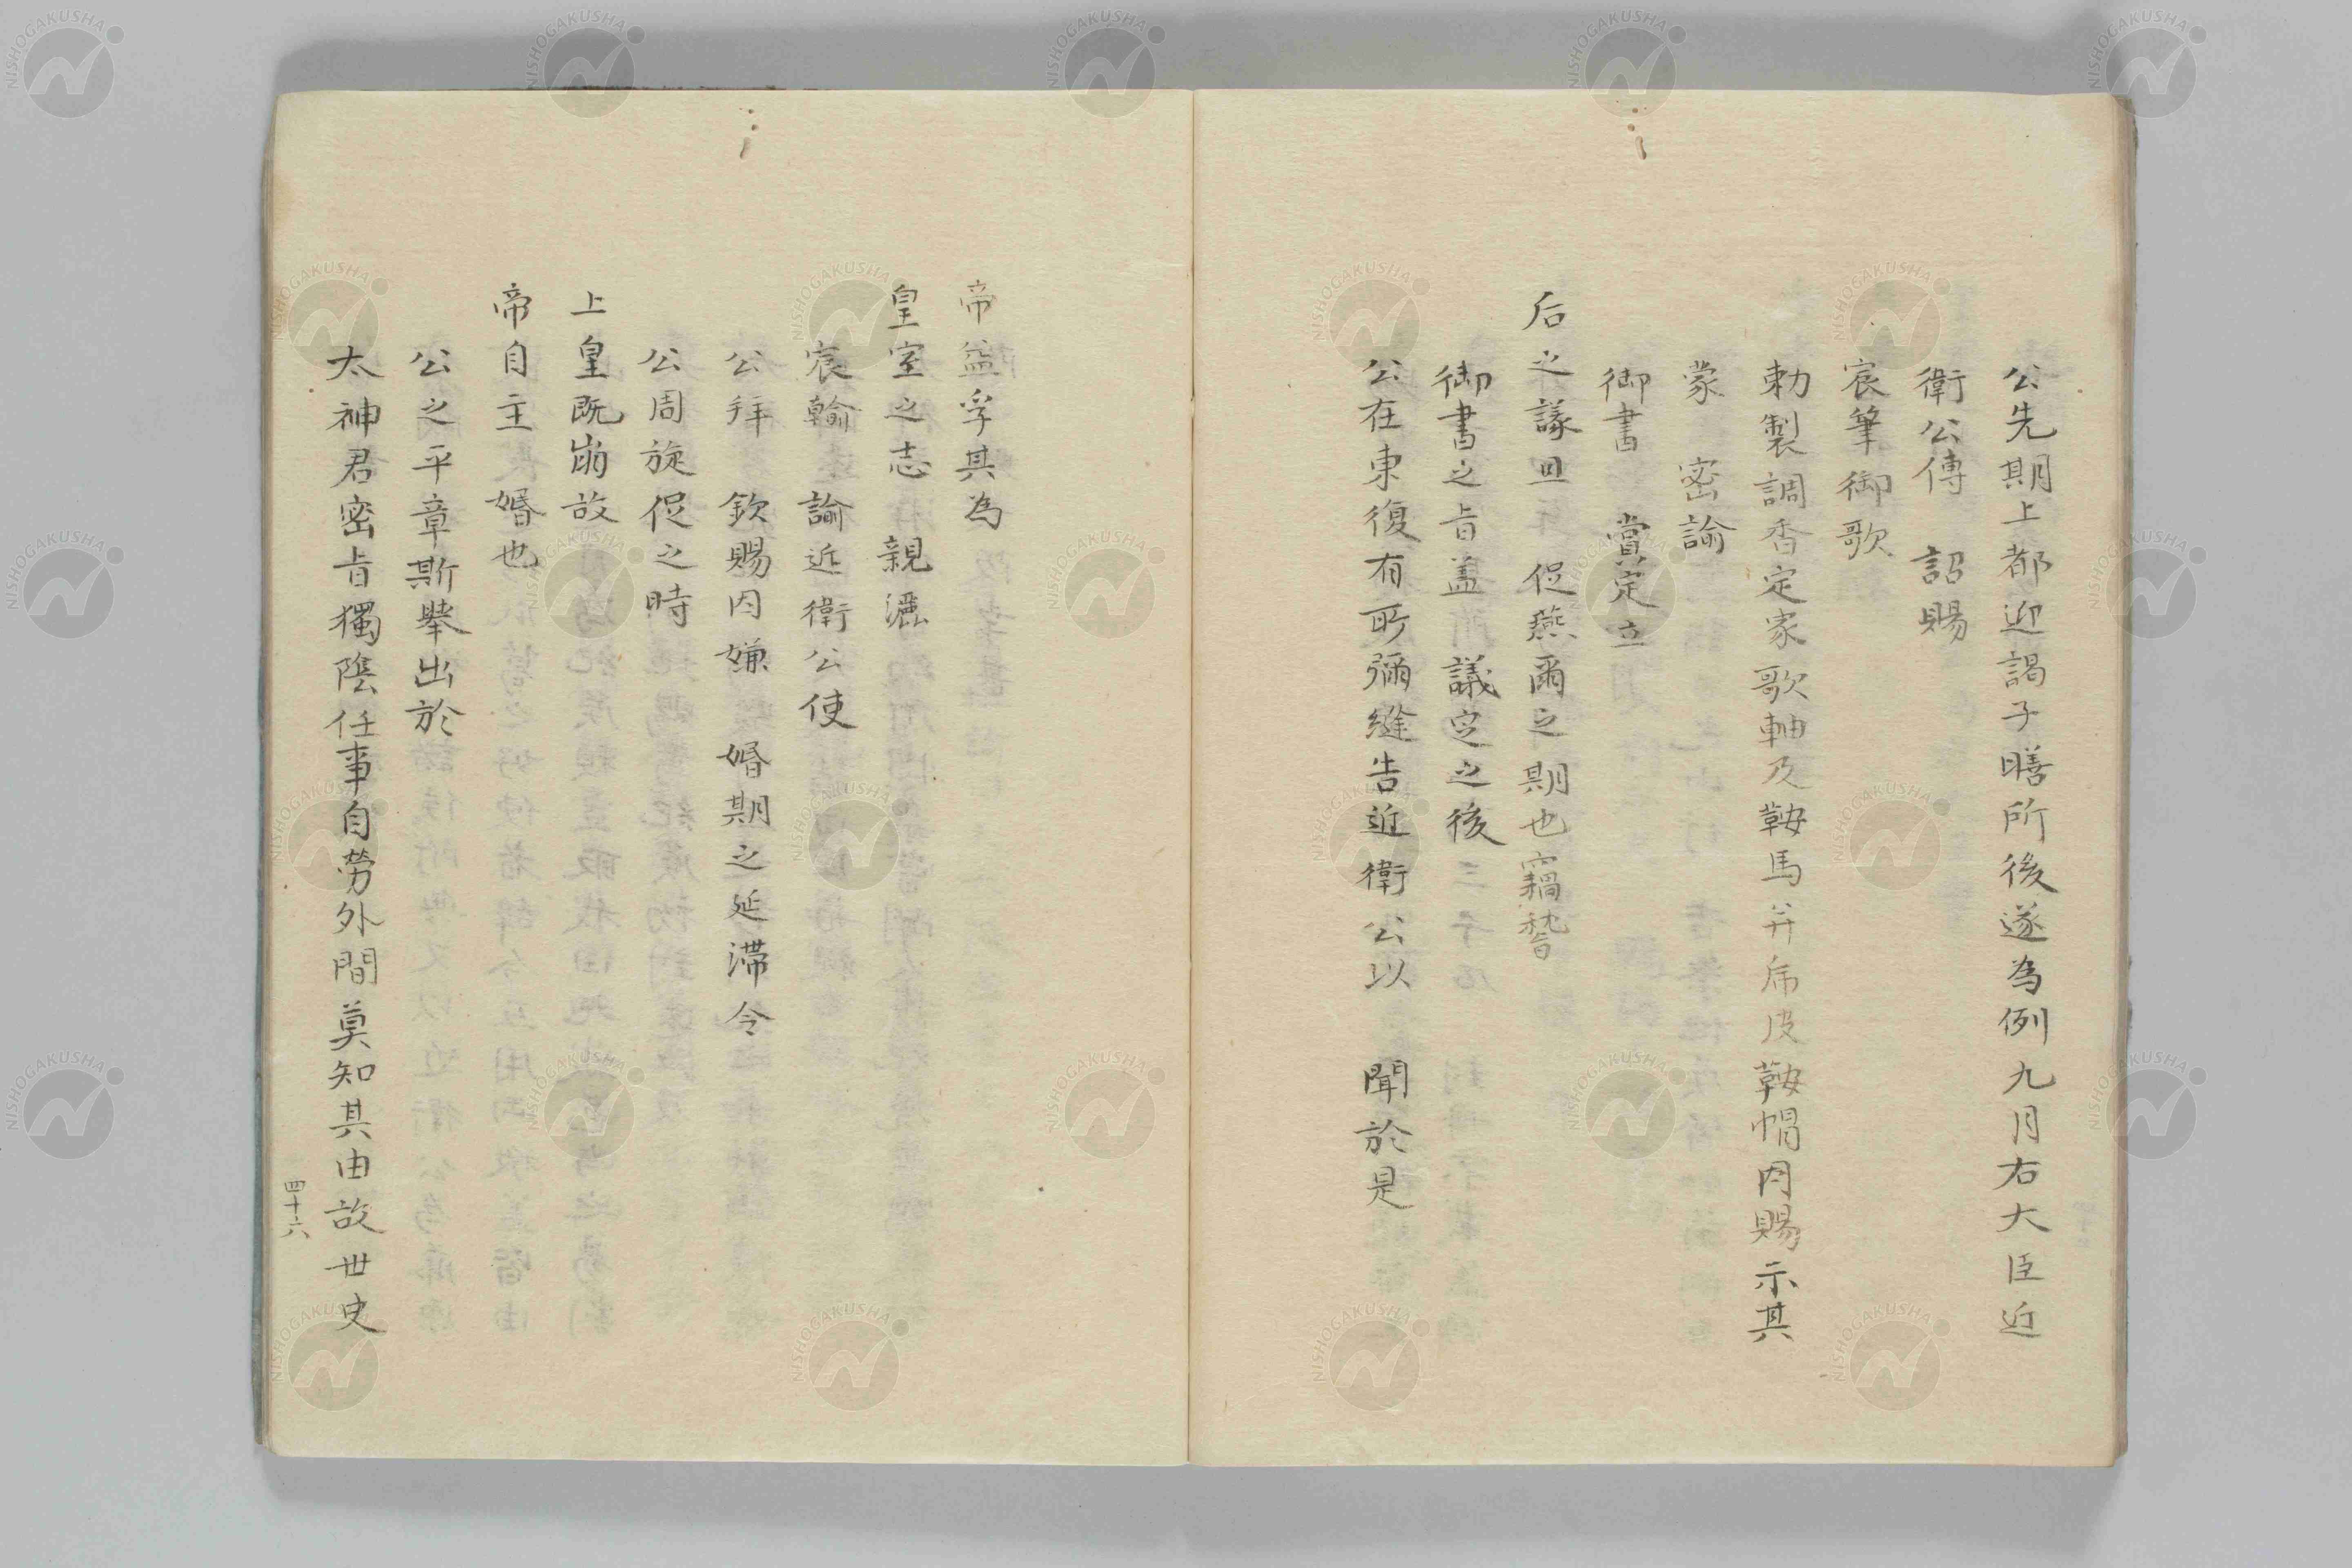 公先期上都迎謁子膳所後遂為例九月右大臣近
衛公傳　詔賜
宸筆御歌
勅製調香定家歌軸及鞍馬并虎皮鞍帽内賜示其
蒙　密諭
御書　賞定立
后之議且　促燕爾之期也竊贅
御書之旨蓋　議定之後
公在東復有所彌縫告近衛公以　聞於是
帝益孚其為
皇室之志　親灑
宸翰　諭近衛公使
公拜　欽賜因嫌　婚期之延滞令
公周旋促之時
上皇既崩故
帝自主　婚也
公之平章斯舉出於
太神君密旨獨陰任事自勞外間莫知其由故世史
四十六
NISHOGAKUSHA